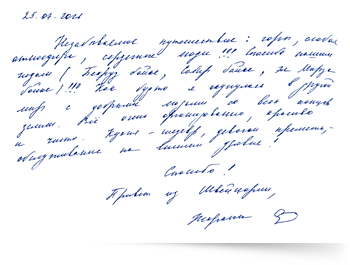 25.07.2021
Незабываемое путешествие: горы, особая
атмосфера, сердечные люди!!! Спасибо нашим
гидам!
байке!!!! Как будто я окунулась в другой
мир с добрыми людьми со всех концов
земли. Всё очень организованно, красиво
и чисто. Кухня - шедевр, девочки премило,
обслуживание на высшем уровне!
Спасибо!
Привет из Швейцарии,